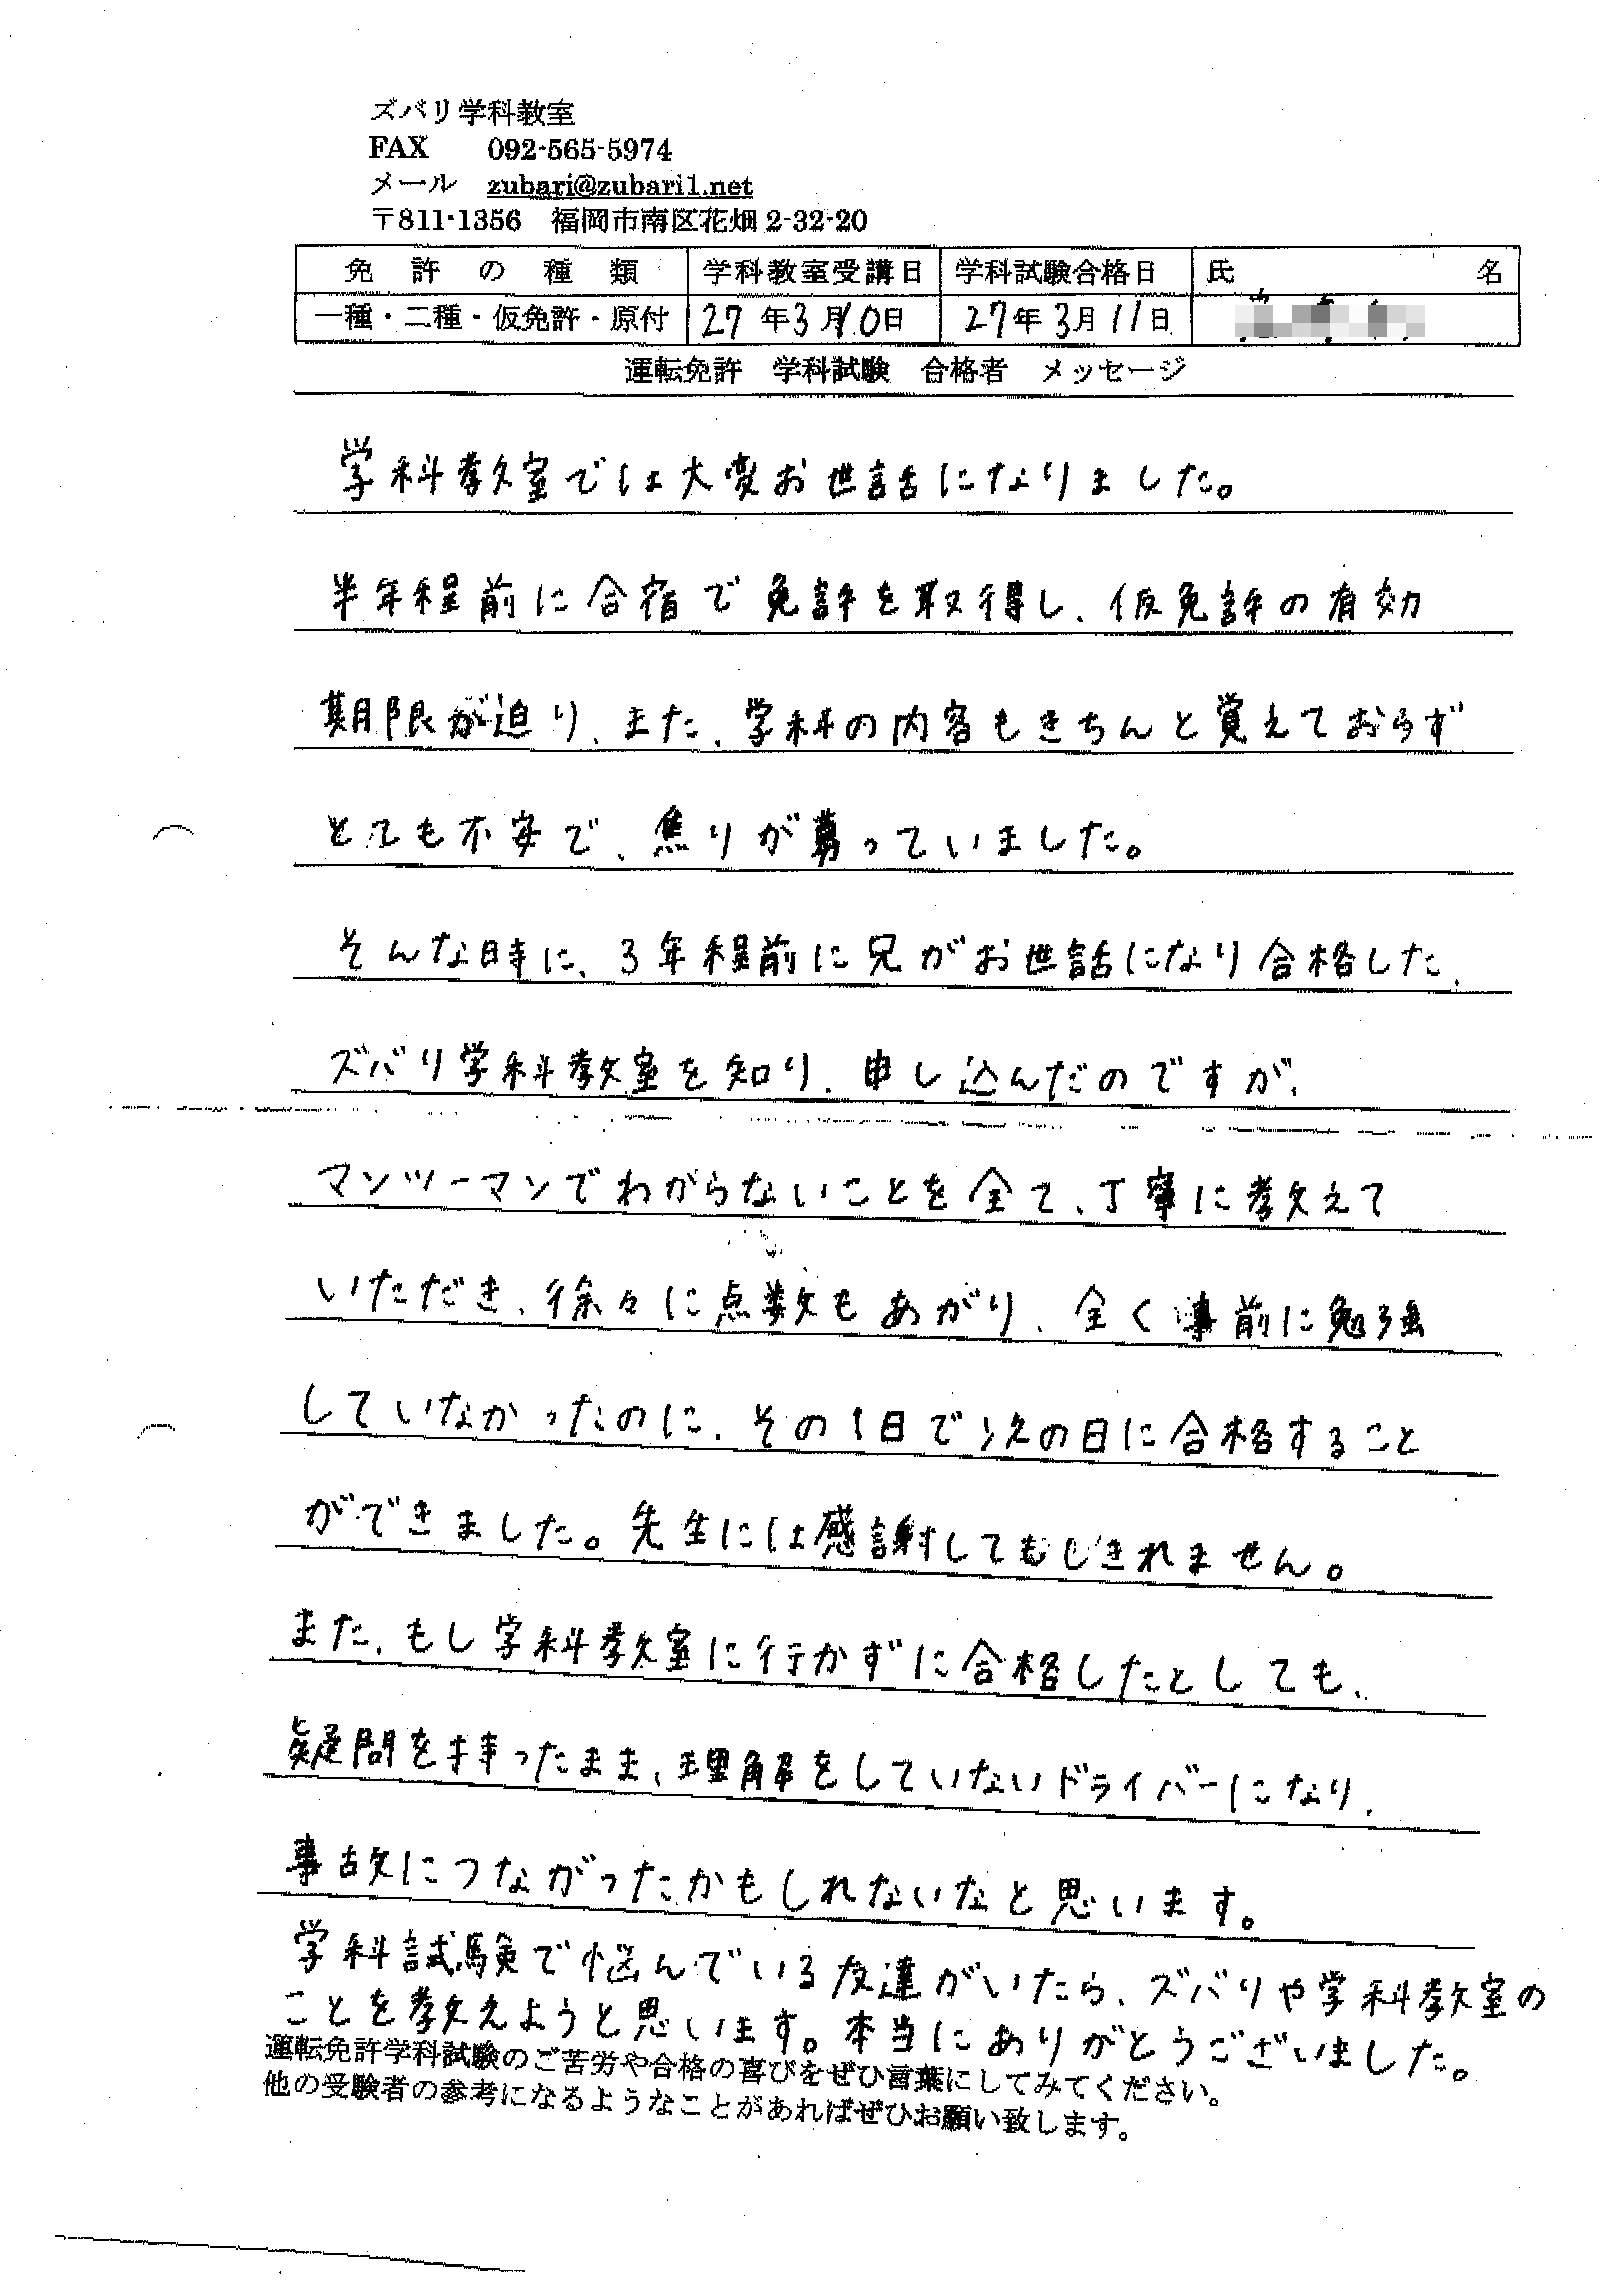 ズバリ学科教室
FAX 092-565-5974
メール zubari@zubari1.net
〒811-1356 福岡市南区花畑2-32-20
免許の種類 学科教室受講日 学科試験合格日 氏名
一種・二種・仮免許・原付 27年3月10日 27年3月11日
運転免許 学科試験 合格者 メッセージ
学科教室では大変お世話になりました。
半年程前に合宿で免許を取得し、仮免許の有効
期限が迫り、また、学科の内容もきちんと覚えておらず
とても不安で、焦りが募っていました。
そんな時に、3年程前に兄がお世話になり合格した、
ズバリ学科教室を知り、申し込んだのですが、
マンツーマンでわからないことを全て、丁寧に教えて
いただき、徐々に点数もあがり、全く事前に勉強
していなかったのに、その1日で次の日に合格すること
ができました。先生には感謝してもしきれません。
また、もし学科教室に行かずに合格したとしても、
疑問を持ったまま、理解をしていないドライバーになり、
事故につながったかもしれないなと思います。
学科試験で悩んでいる友達がいたら、ズバリや学科教室の
ことを教えようと思います。本当にありがとうございました。
運転免許学科試験のご苦労や合格の喜びをぜひ言葉にしてみてください。
他の受験者の参考になるようなことがあればぜひお願い致します。